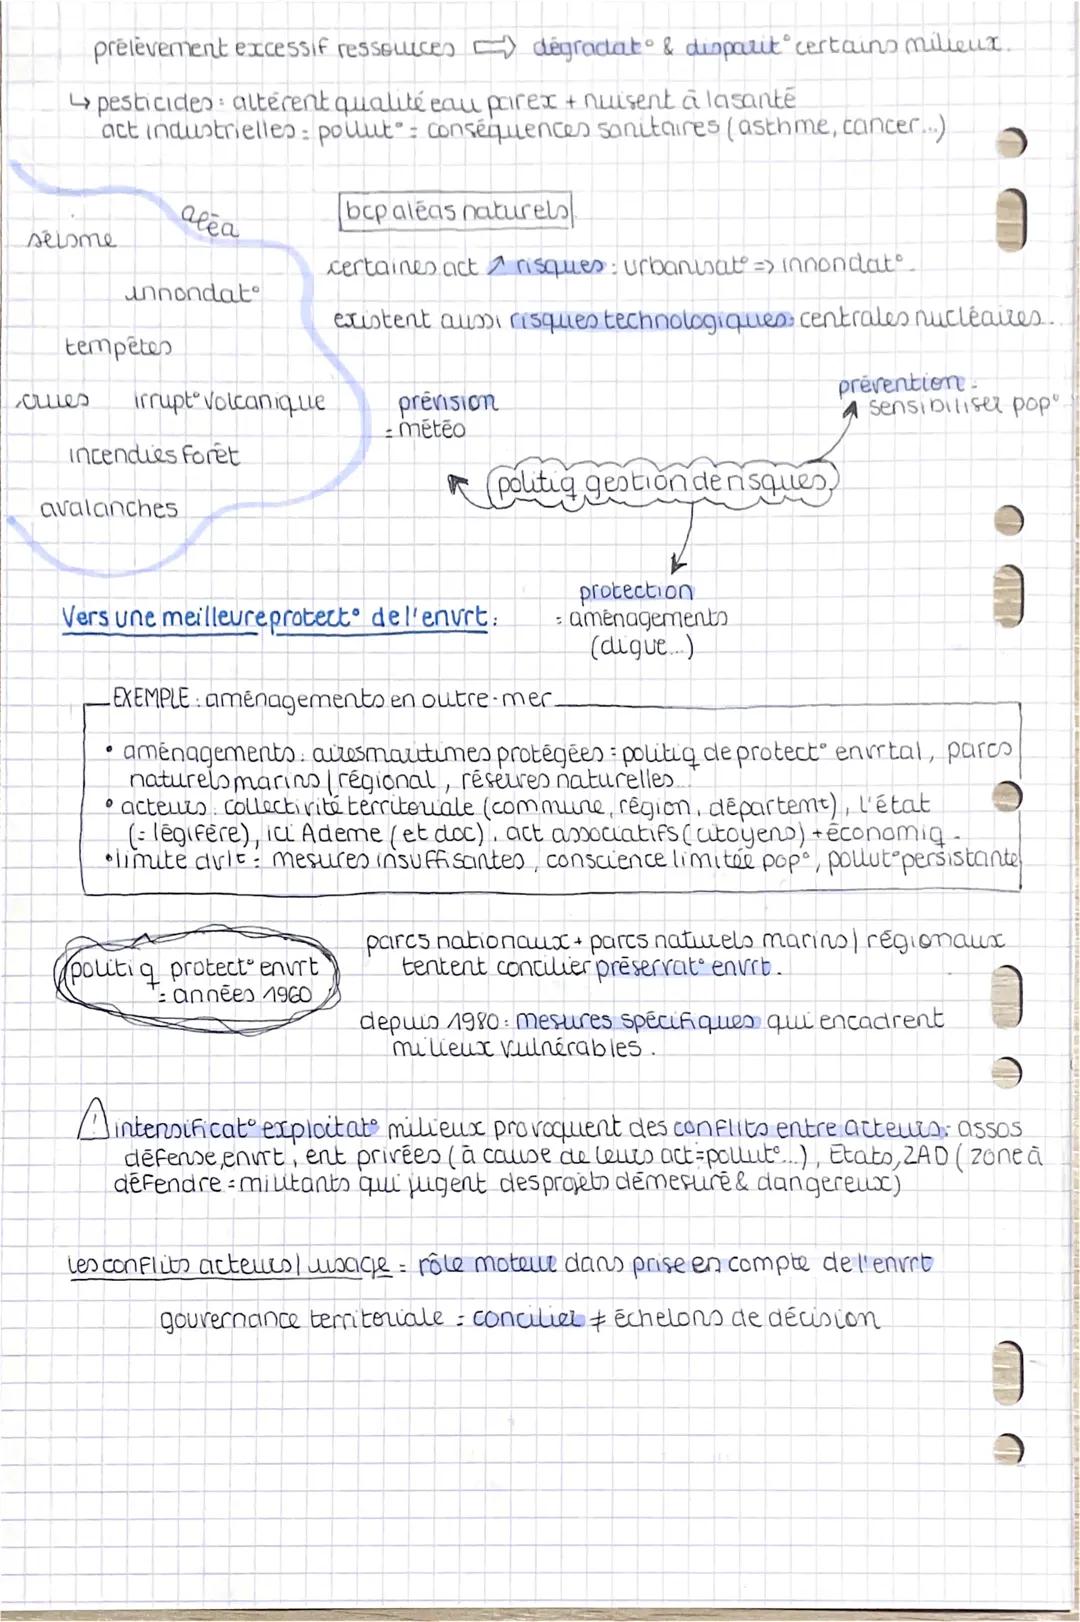 prélèvement excessif ressources ⇨ dégradat° & disparit° certains milieux.
↳ pesticides : altèrent qualité eau par ex + nuisent à la santé
act industrielles : pollut° = conséquences sanitaires (asthme, cancer...)
aléa
séisme
innondat°
tempêtes
crues irrupt° volcanique
incendies forêt
avalanches
bcp aléas naturels
certaines act ↗ risques : urbanisat° => innondat°.
existent aussi risques technologiques : centrales nucléaires..
prévision
= météo
prévention =
sensibiliser pop°
politiq gestion de risques
protection
= aménagements
(digue...)
Vers une meilleure protect° de l'envrt :
EXEMPLE : aménagements en outre-mer
• aménagements : aires maritimes protégées = politiq de protect° envrtal, parcs
naturels marins / régional, réserves naturelles...
• acteurs : collectivité territoriale (commune, région, départemt), l'état
(= légifère), ici Ademe (et doc), act associatifs (citoyens) + économiq.
• limite : mesures insuffisantes, conscience limitée pop°, pollut° persistante
politiq protect° envrt
= années 1960
parcs nationaux + parcs naturels marins / régionaux
tentent concilier préservat° envrt.
depuis 1980 : mesures spécifiques qui encadrent
milieux vulnérables.
⚠ intensificat° exploitat° milieux provoquent des conflits entre acteurs : assos
défense envrt, ent privées (à cause de leurs act = pollut°...), États, ZAD (zone à
défendre = militants qui jugent des projets démesuré & dangereux)
les conflits acteurs / usage = rôle moteur dans prise en compte de l'envrt
gouvernance territoriale = concilier ≠ échelons de décision